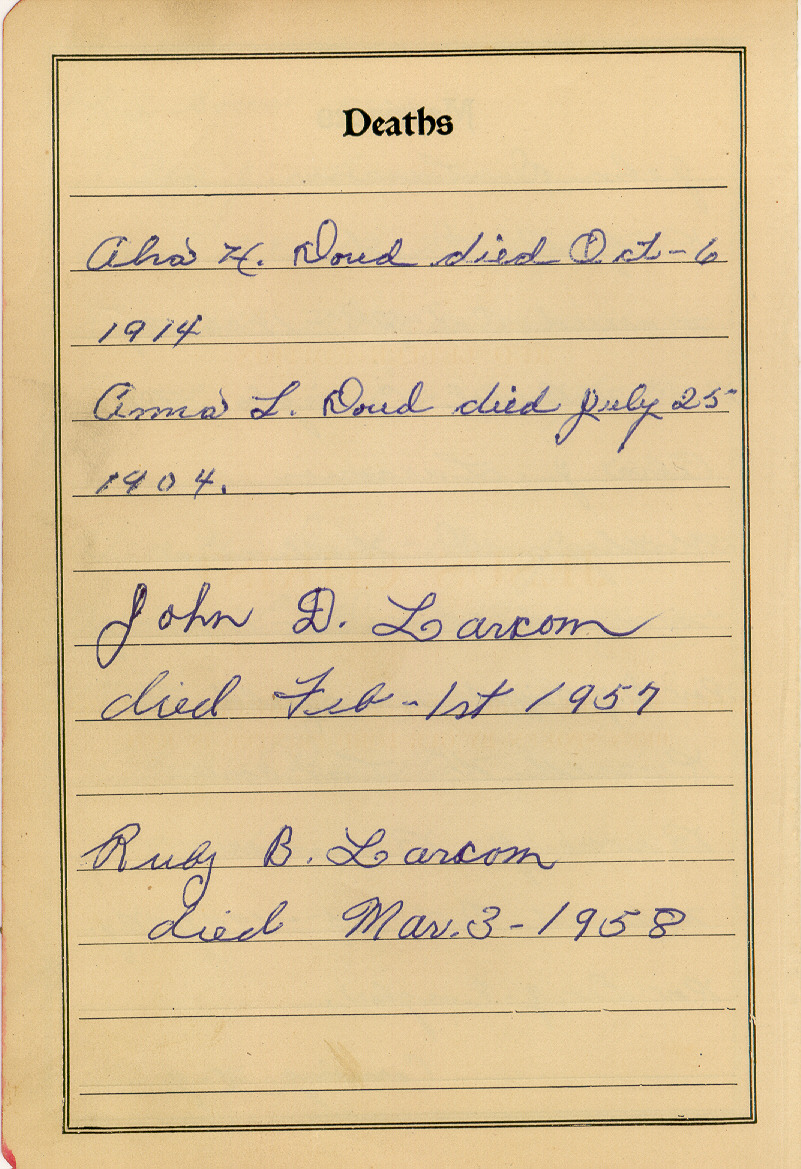 Deaths
H. Doud died Oct-6
1914
Anna L. Doud died July 25
1904.
John D. Larcom
died Feb-1st 1957
Ruby B. Larcom
died Mar. 3-1958